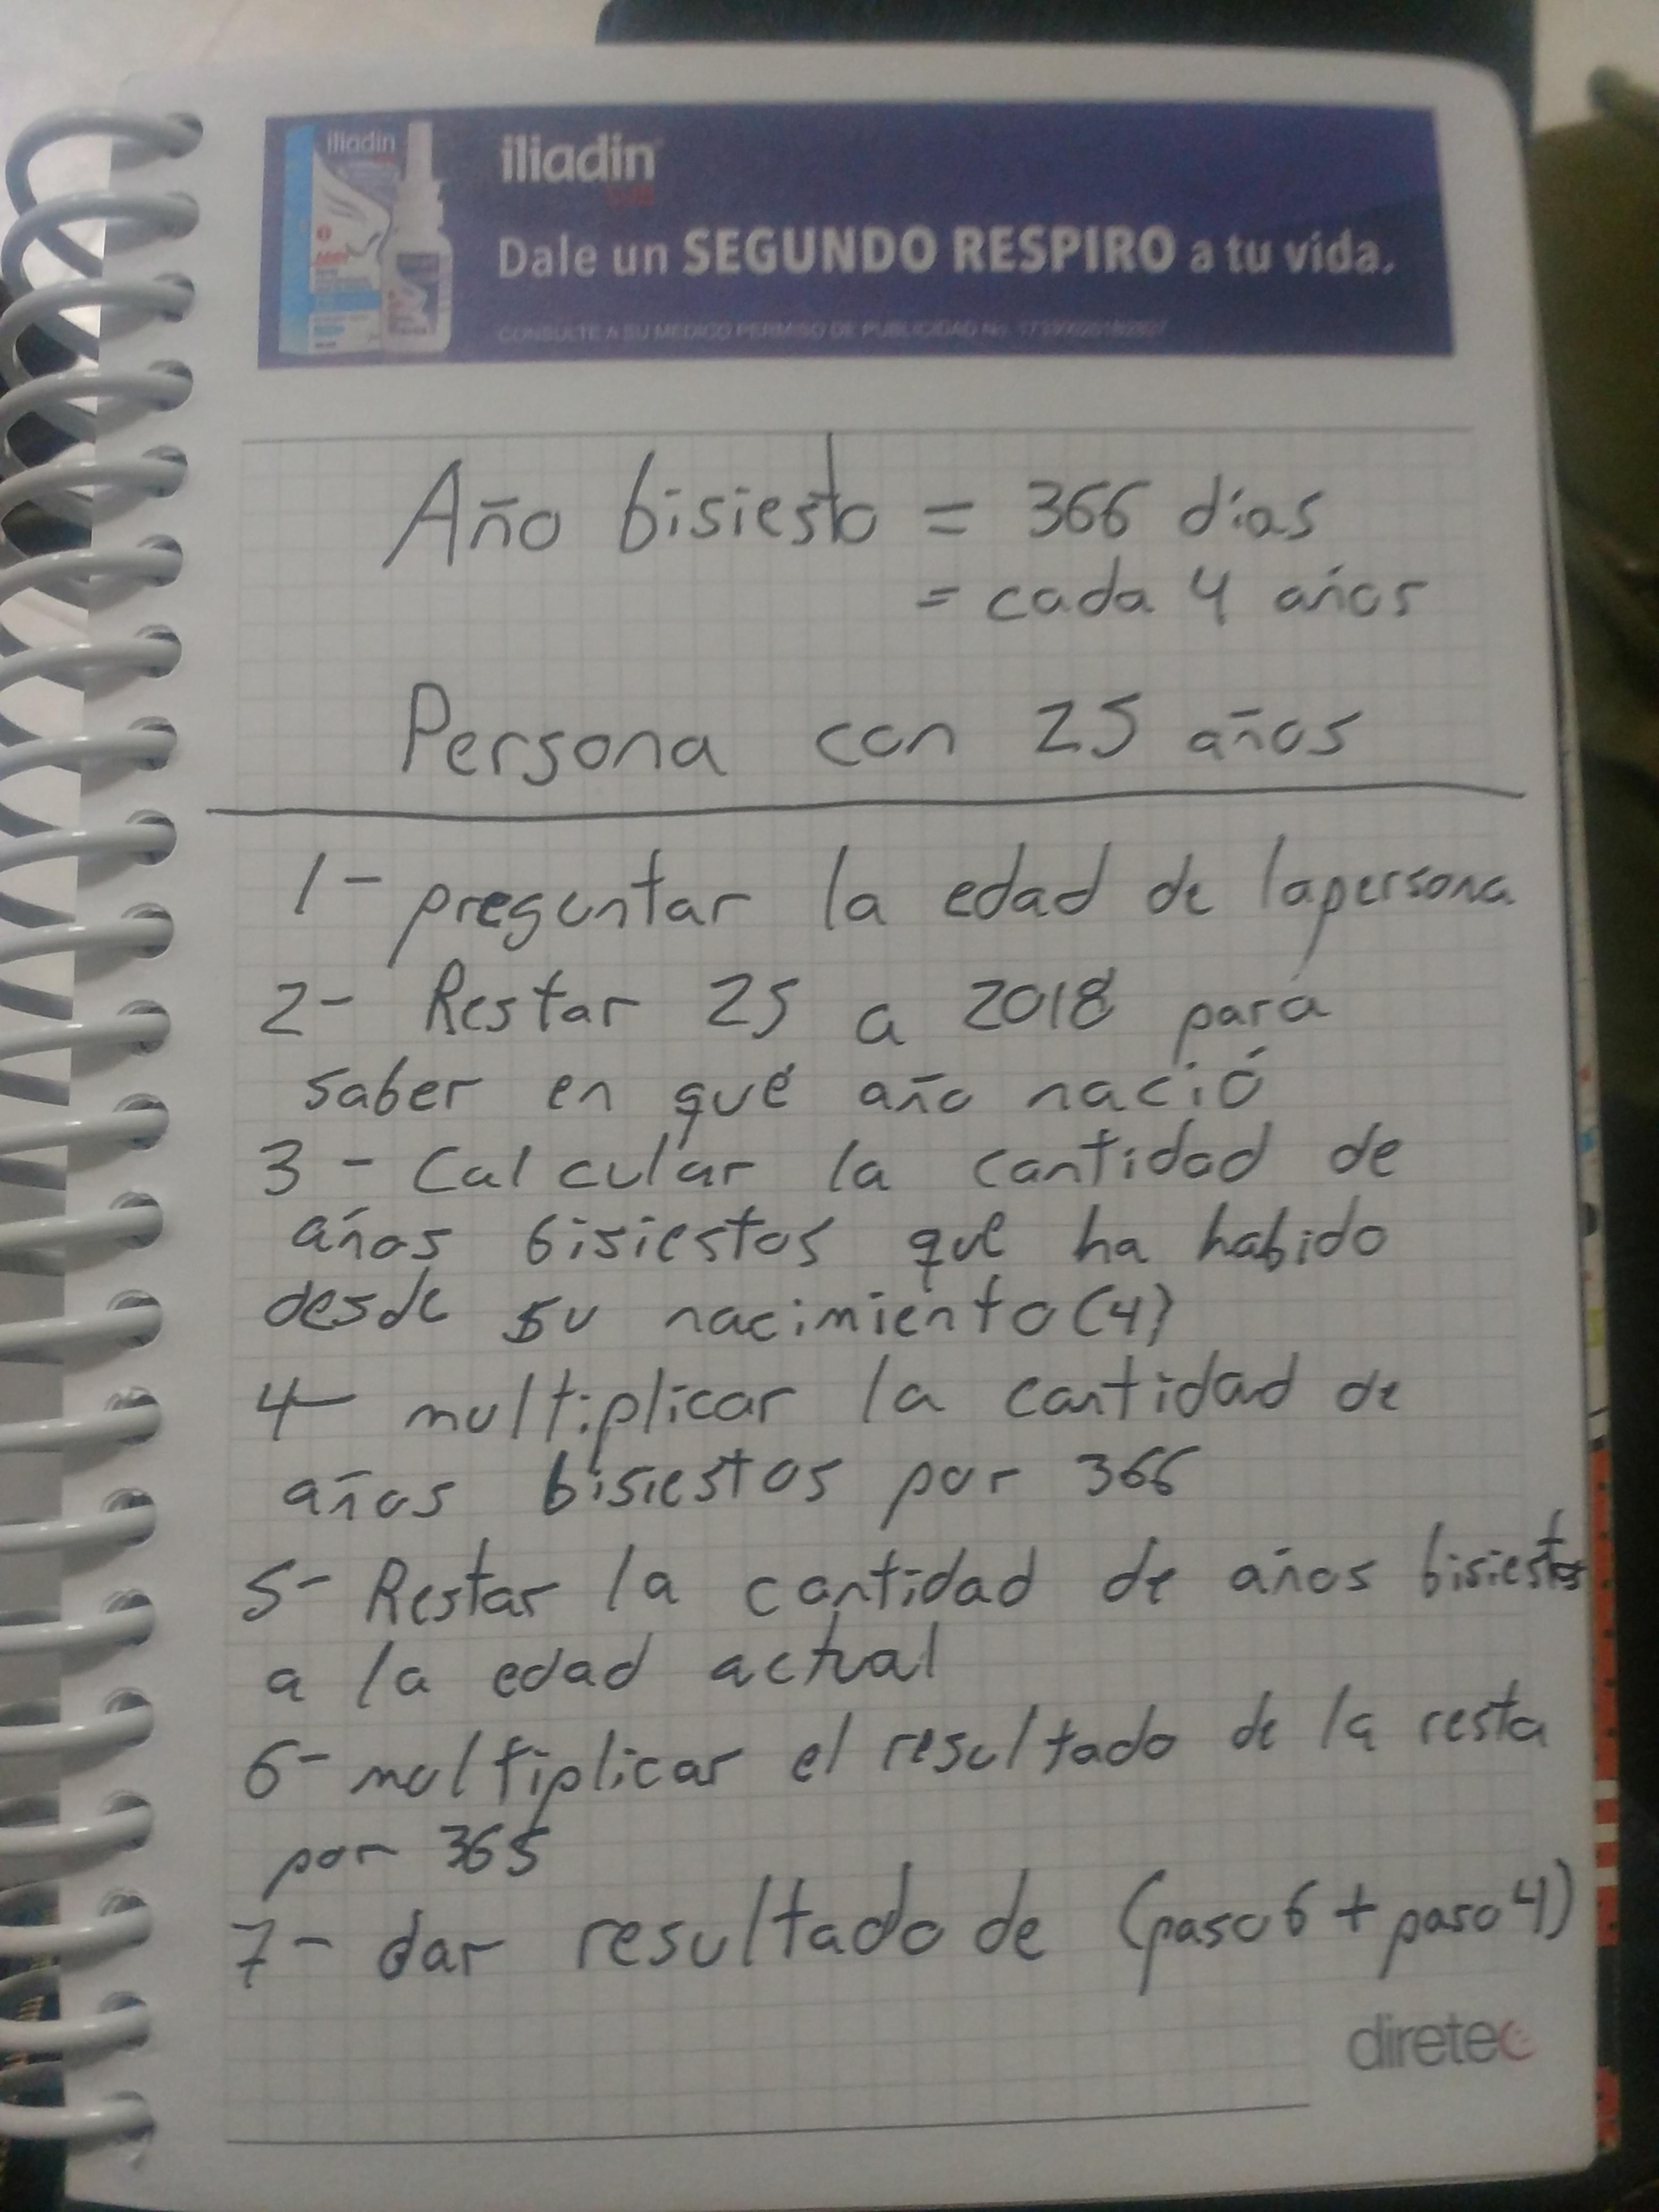 iliadin
iliadin
Dale un SEGUNDO RESPIRO a tu vida.
CONSULTE A SU MEDICO PERMISO DE PUBLICIDAD No.
Año bisiesto = 366 días
= cada 4 años
Persona con 25 años
1- preguntar la edad de la persona
2- Restar 25 a 2018 para
saber en qué año nació
3- Calcular la cantidad de
años bisiestos que ha habido
desde su nacimiento (4)
4- multiplicar la cantidad de
años bisiestos por 366
5- Restar la cantidad de años bisiestos
a la edad actual
6- multiplicar el resultado de la resta
por 365
7- dar resultado de (paso 6 + paso 4)
diretec